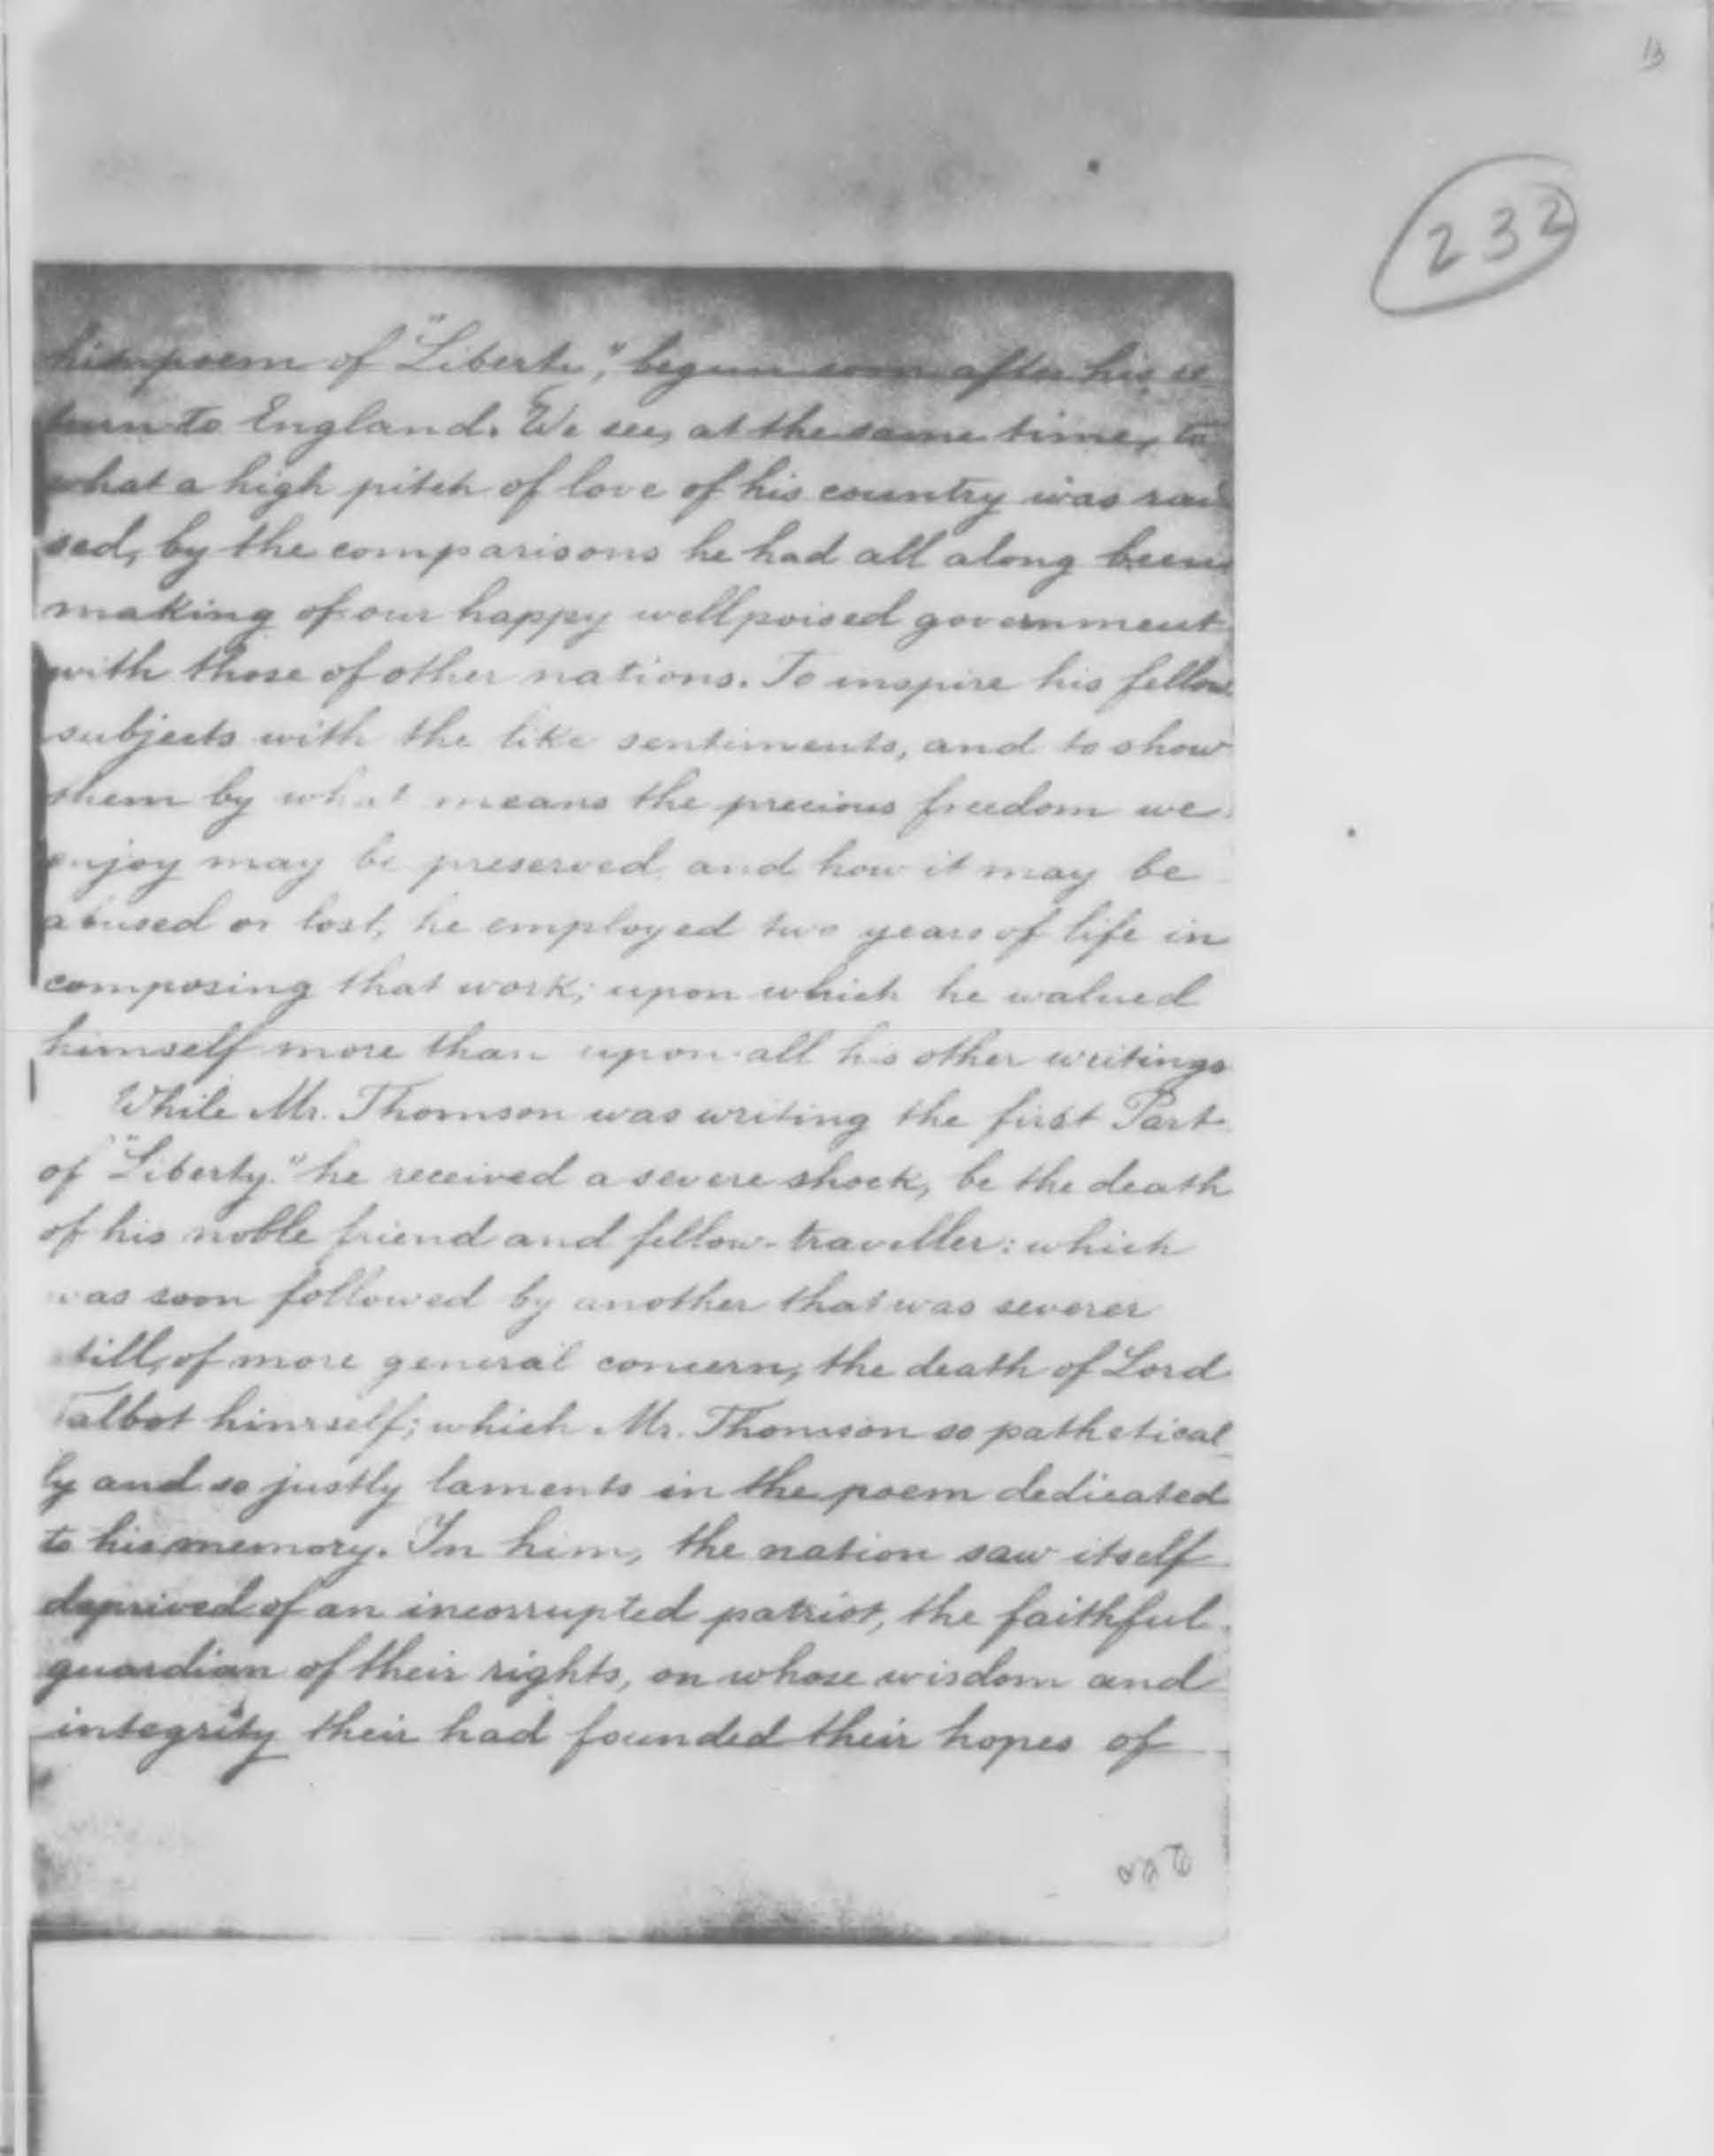 13
232
his poem of "Liberty," begun soon after his re
turn to England. We see, at the same time, to
what a high pitch of love of his country was rai
sed, by the comparisons he had all along been
making of our happy well poised government
with those of other nations. To inspire his fellow
subjects with the like sentiments, and to show
them by what means the precious freedom we
enjoy may be preserved, and how it may be
abused or lost, he employed two years of life in
composing that work; upon which he walued
himself more than upon all his other writings
While Mr. Thomson was writing the first Part
of "Liberty" he received a severe shock, be the death
of his noble friend and fellow-traveller: which
was soon followed by another that was severer
still, of more general concern, the death of Lord
Talbot himself; which Mr. Thomson so pathetical_
ly and so justly laments in the poem dedicated
to his memory. In him, the nation saw itself
deprived of an incorrupted patriot, the faithful
guardian of their rights, on whose wisdom and
integrity their had founded their hopes of